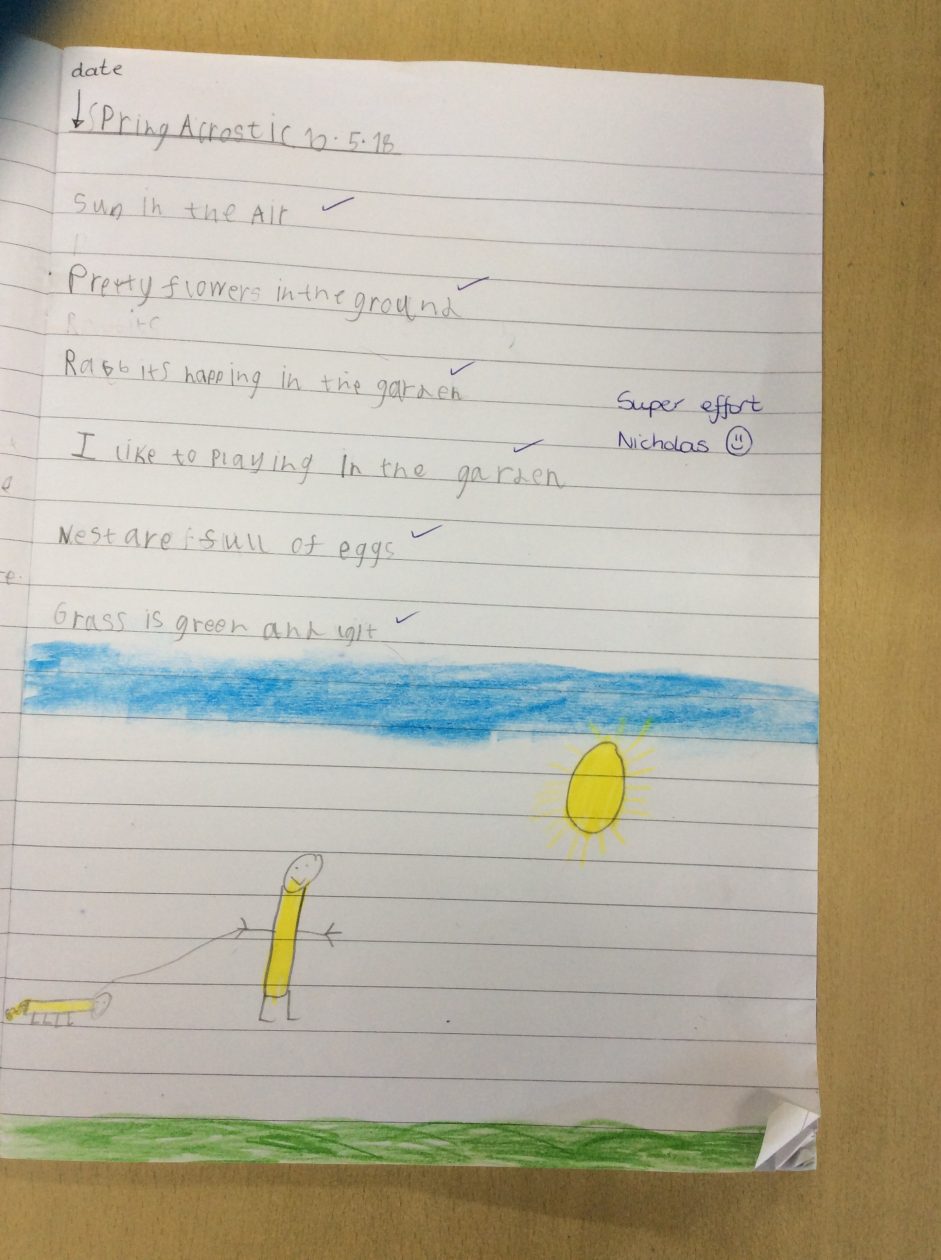 date
↓ Spring Acrostic 10.5.18
Sun in the Air
Pretty flowers in the ground
Rabbits happing in the garden
Super effort
I like to playing in the garden
Nicholas
Nest are full of eggs
Grass is green and